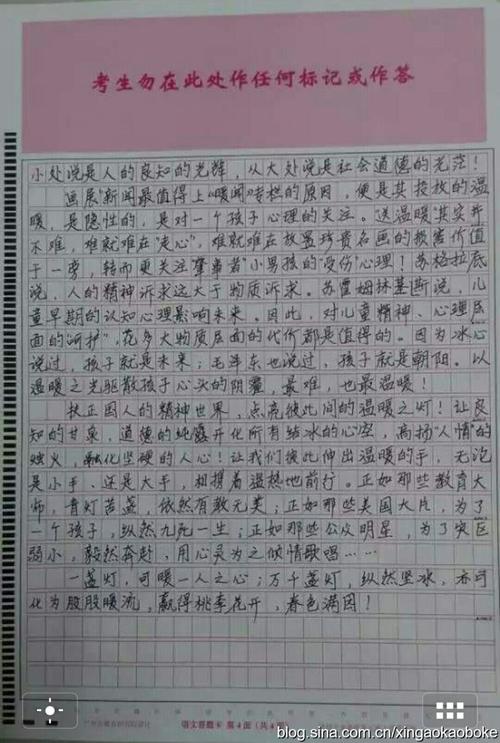 考生勿在此处作任何标记或作答
小处说是人的良知的光辉，从大处说是社会道德的光茫！
画展"新闻最值得上"暖闻"专栏的原因，便是其投放的温
暖，是隐性的，是对一个孩子心理的关注。送温暖"其实并
不难，难就难在"走心"，难就难在放置珍贵名画的损害价值
于一旁，转而更关注肇事者"小男孩的"受伤"心理！苏格拉底
说，人的精神诉求远大于物质诉求。苏霍姆林基斯说，儿
童早期的认知心理影响未来。因此，对儿童精神、心理层
面的"呵护"，花多大物质层面的代价都是值得的。因为冰心
说过，孩子就是未来；毛泽东也说过，孩子就是朝阳。以
温暖之光驱散孩子心头的阴霾，最难，也最温暖！
扶正国人的精神世界，点亮彼此间的温暖之灯！让良
知的甘泉，道德的纯露开化所有结冰的心壑，高扬"人情"的
烛火，融化坚硬的人心！让我们彼此伸出温暖的手，无论
是小手、还是大手，相携着温热地前行。正如那些教育大
师，青灯苦盏，依然有教无类；正如那些美国大片，为了
一个孩子，纵然九死一生；正如那些公众明星，为了灾区
弱小，毅然奔赴，用心灵为之倾情歌唱……
一盏灯，可暖一人之心；万千盏灯，纵然坚冰，亦可
化为股股暖流，赢得桃李花开，春色满园！
语文答题卡 第4面（共4面）
blog.sina.com.cn/xingaokaoboke